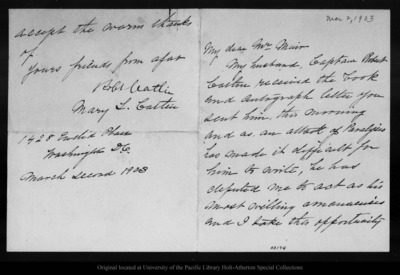 Mar 2, 1903
My dear Mr Muir
My husband, Captain Robert
Catlin received the book
and autograph letter you
sent him, this morning
and as, an attack of Paralysis
has made it difficult for
him to write, he has
deputed me to act as his
most willing amanuensis
and I take this opportunity
accept the warm thanks
of
Yours friends from afar
Robt Catlin
Mary L. Catlin
1428 Euclid Place
Washington D.C.
March second 1903
03194
Original located at University of the Pacific Library Holt-Atherton Special Collections